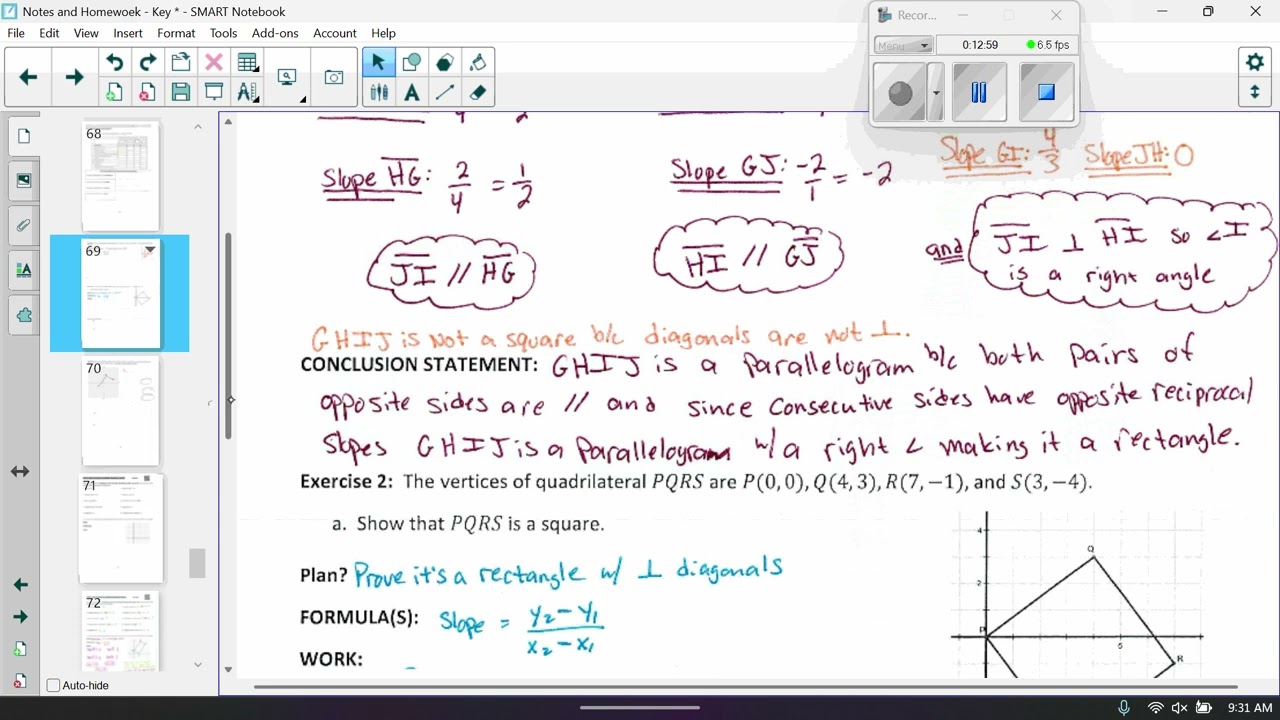 Notes and Homewoek - Key * - SMART Notebook
File Edit View Insert Format Tools Add-ons Account Help
Recor...
Menu 0:12:59 6.5 fps
68
69
70
71
72
Auto-hide
Slope GI: 4/3 Slope JH: 0
Slope HG: 2/4 = 1/2
Slope GJ: -2/1 = -2
JI // HG
HI // GJ
and JI ⊥ HI so ∠I
is a right angle
GHIJ is Not a square b/c diagonals are not ⊥.
CONCLUSION STATEMENT: GHIJ is a parallelogram b/c both pairs of
opposite sides are // and since consecutive sides have opposite reciprocal
slopes GHIJ is a parallelogram w/ a right ∠ making it a rectangle.
Exercise 2: The vertices of quadrilateral PQRS are P(0,0), Q(4,3), R(7,−1), and S(3,−4).
a. Show that PQRS is a square.
Plan? Prove it's a rectangle w/ ⊥ diagonals
FORMULA(S): Slope = y₂-y₁/x₂-x₁
WORK:
4
Q
2
P
5
R
9:31 AM